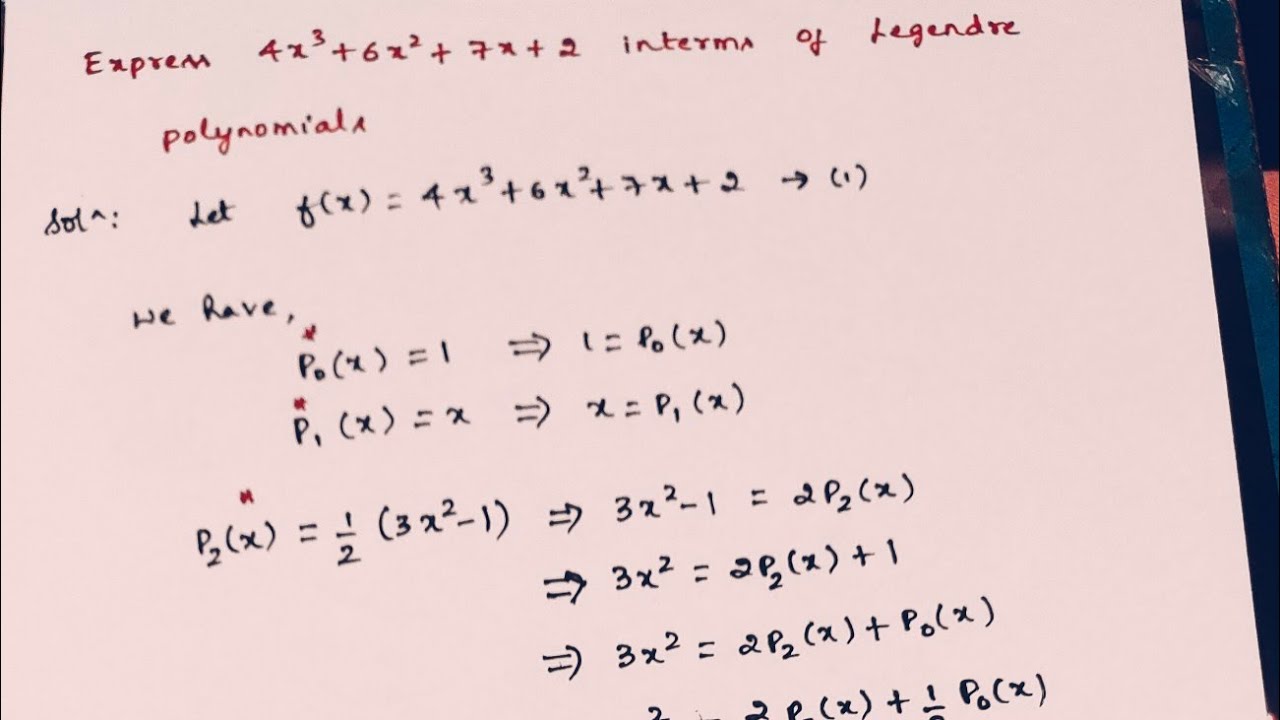 Express 4x³ + 6x² + 7x + 2 interms of Legendre
polynomials
Solⁿ: Let f(x) = 4x³ + 6x² + 7x + 2 → (1)
We have,
* P₀(x) = 1 ⇒ 1 = P₀(x)
* P₁(x) = x ⇒ x = P₁(x)
* P₂(x) = 1/2 (3x² - 1) ⇒ 3x² - 1 = 2P₂(x)
⇒ 3x² = 2P₂(x) + 1
⇒ 3x² = 2P₂(x) + P₀(x)